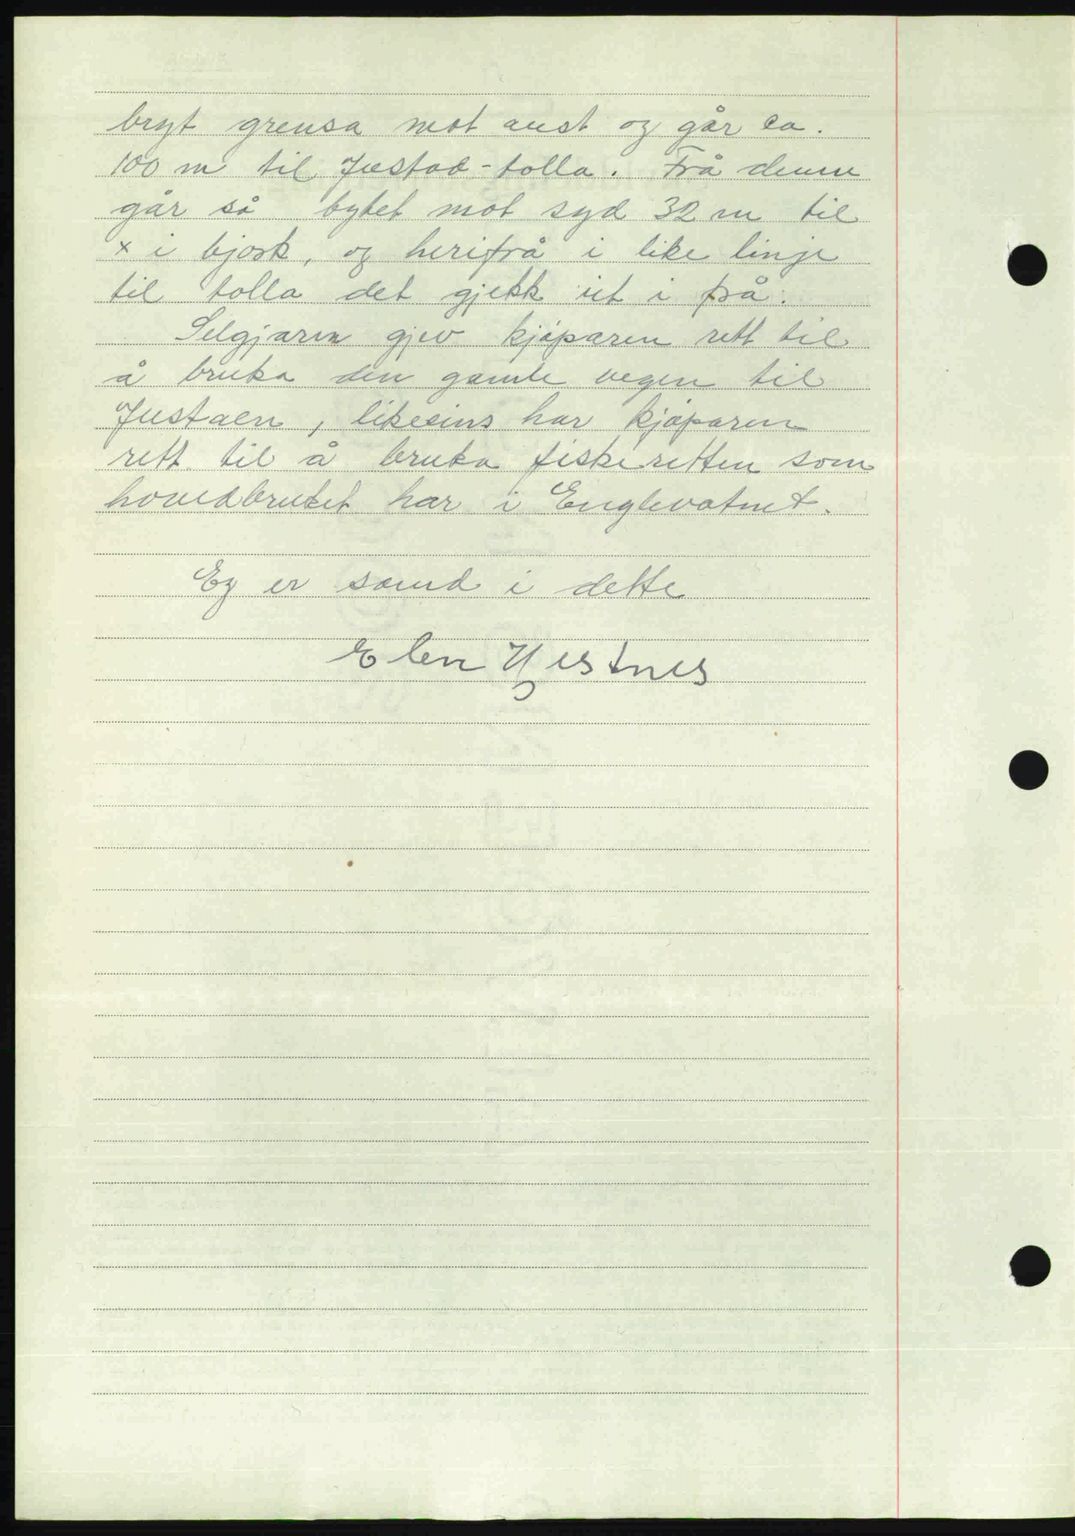 bryt grensa mot aust og går ca.
100 m til Justad-tolla. Frå denne
går så bytet mot syd 32 m til
x i bjørk, og herifrå i like linje
til tolla det gjekk ut i frå.
Selgjaren gjev kjøparen rett til
å bruka den gamle vegen til
likesins har kjøparen
rett til å bruka fiskeretten som
hovedbruket har i Englevatnet.
Eg er samd i dette
Elen Hestnes